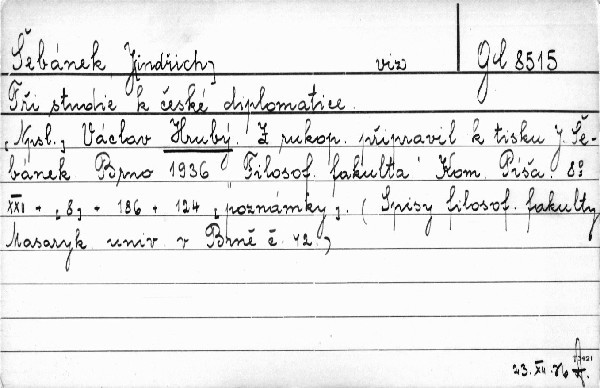 Šebánek J[indřich] viz Gd 8515
Tři studie k české diplomatice.
[Npsl.] Václav Hrubý. Z rukop. připravil k tisku J. Še-
bánek Brno 1936 Filosof. fakulta Kom. Píša 8º
XXI + [8] + 186 + 124 [poznámky]. (Spisy filosof. fakulty
Masaryk. univ. v Brně č. 42.)
23. XII. 36